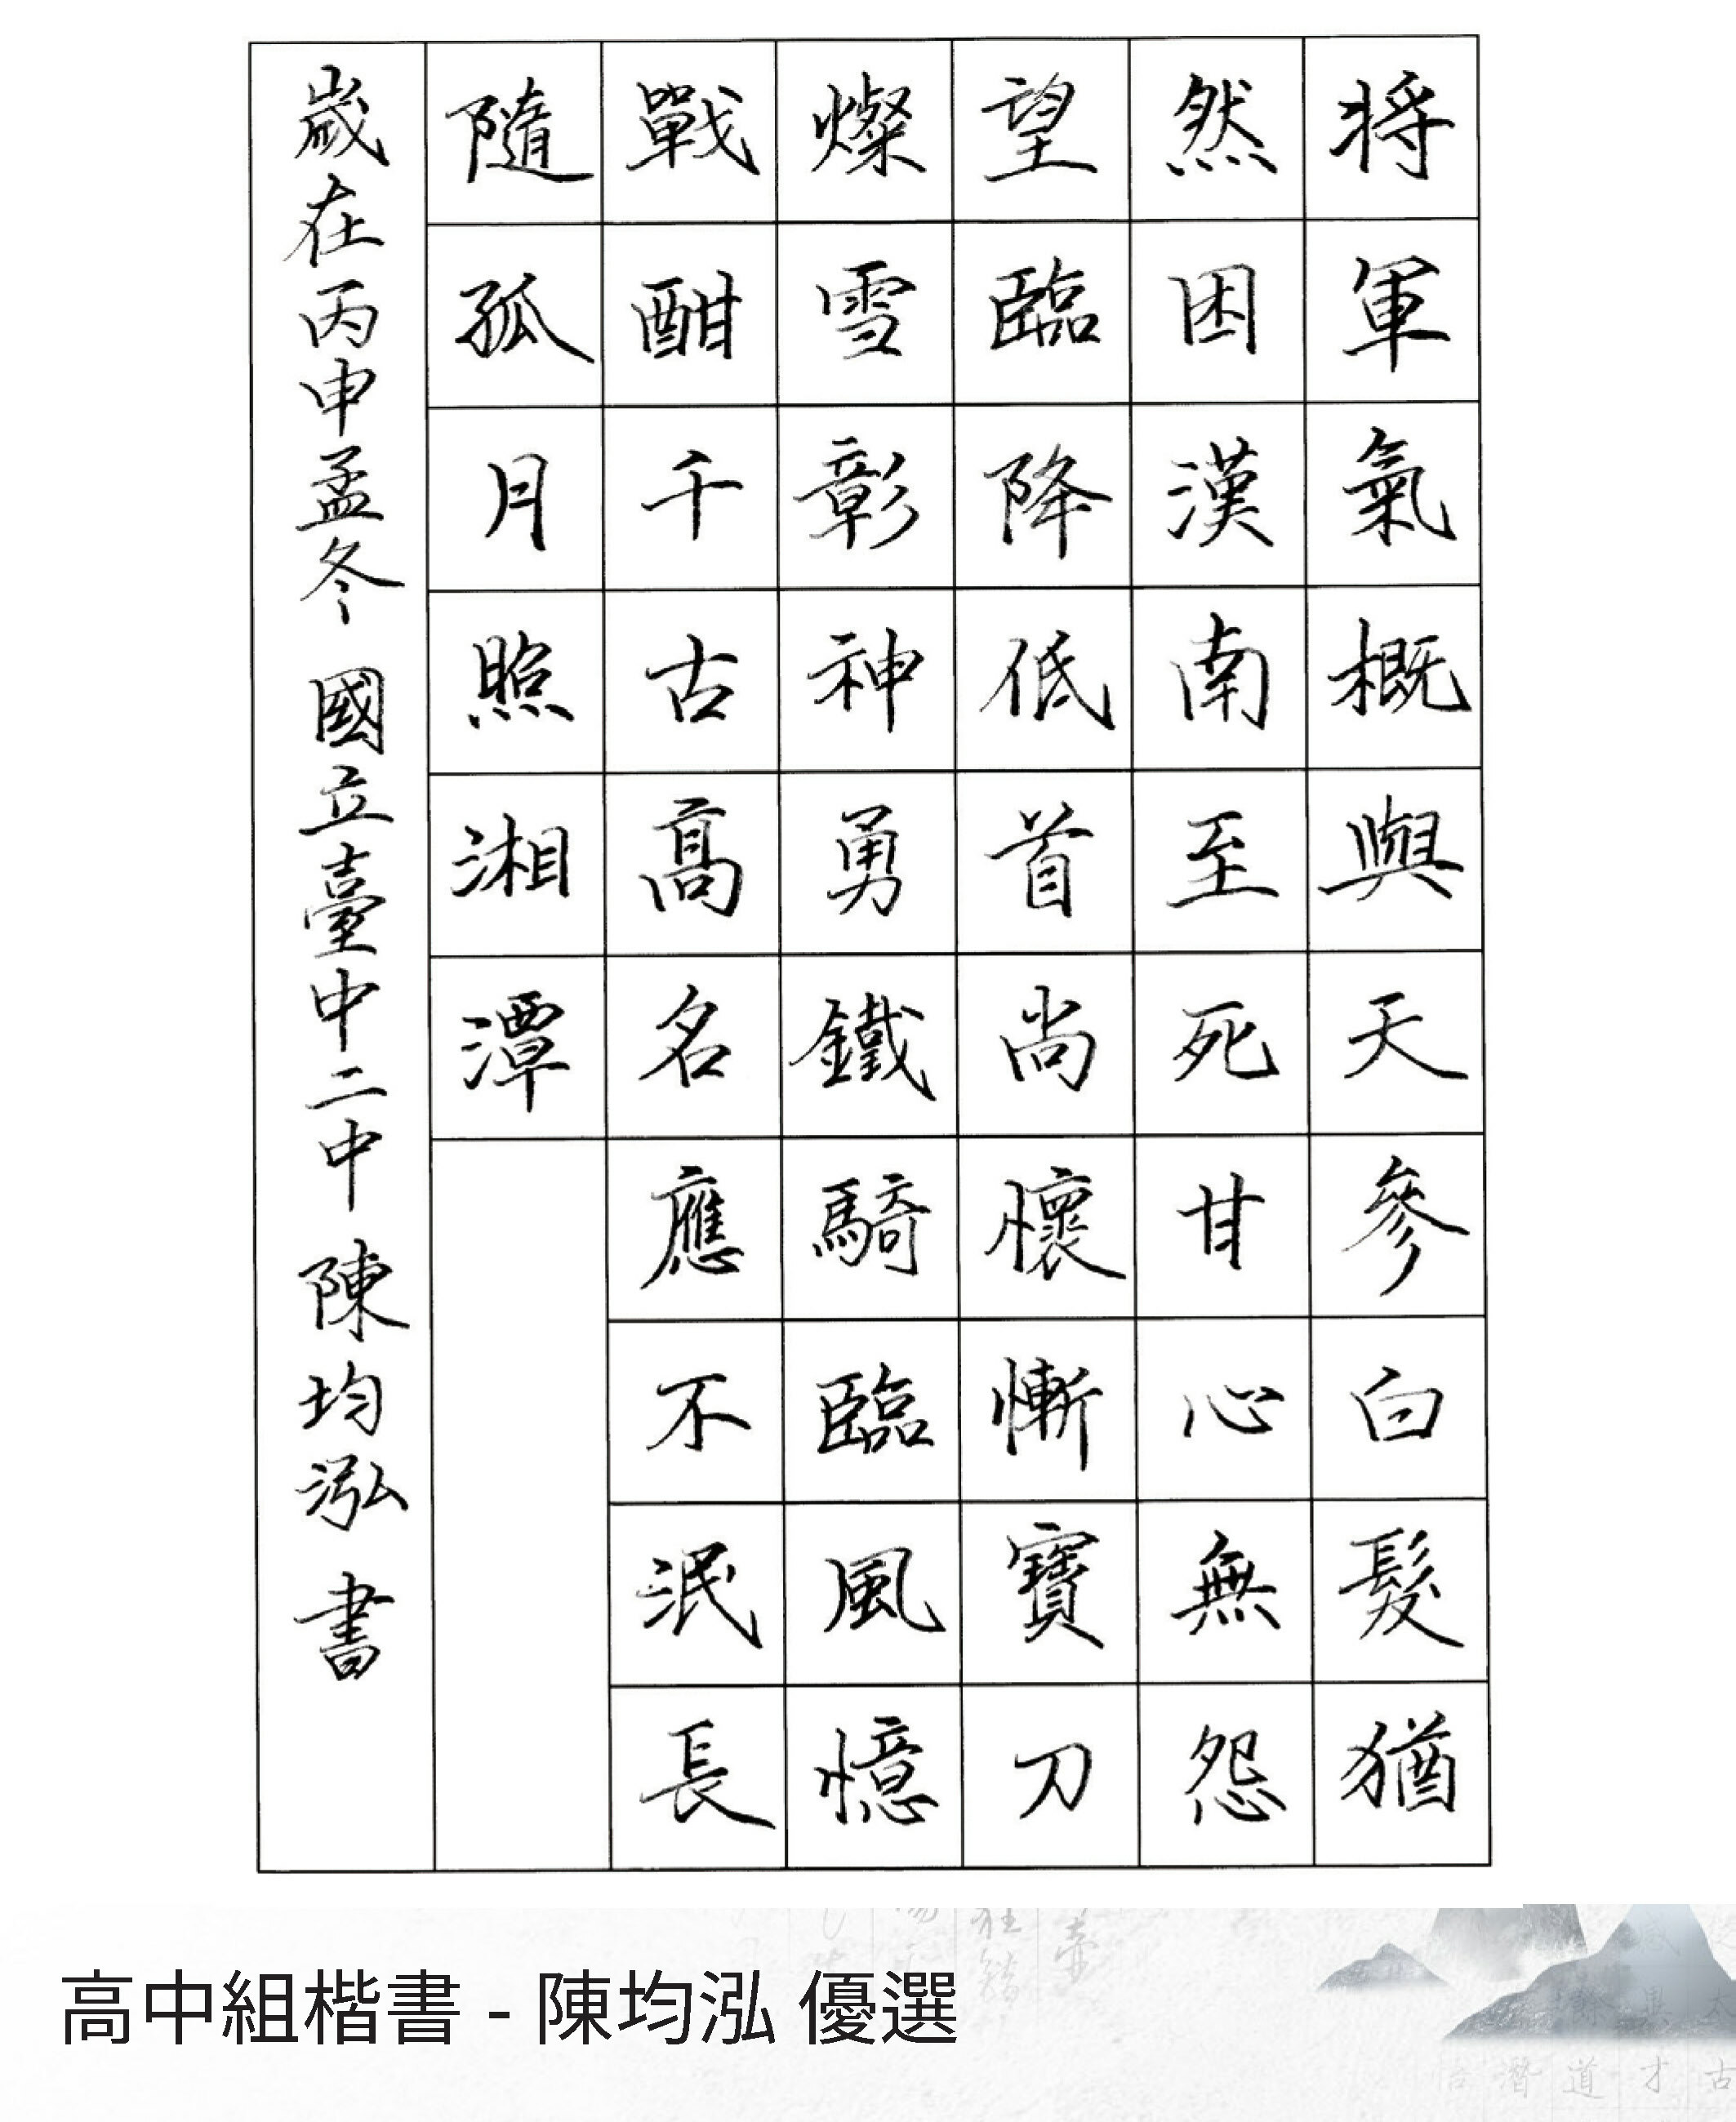 將軍氣概與天參白髮猶
然困漢南至死甘心無怨
望臨降低首尚懷慚寶刀
燦雪彰神勇鐵騎臨風憶
戰酣千古高名應不泯長
隨孤月照湘潭
歲在丙申孟冬 國立臺中二中 陳均泓 書
高中組楷書 - 陳均泓 優選